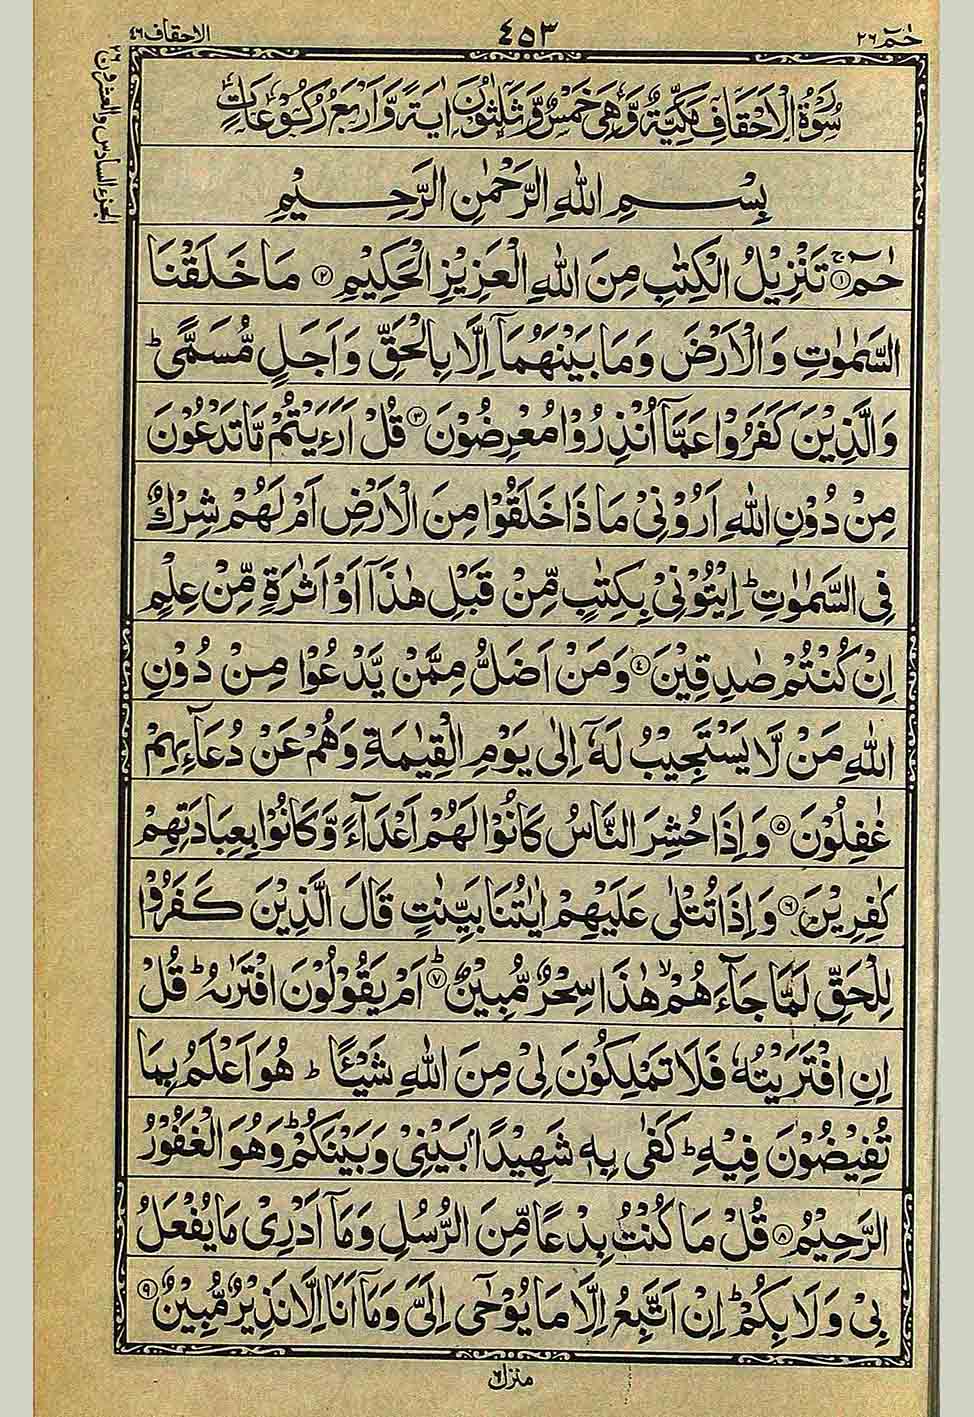 حٰمٓ ٢٦
٤٥٣
الاحقاف ٤٦
الجزء السادس والعشرون ٢٦
سُوْرَةُ الْاَحْقَافِ مَكِّيَّةٌ وَّهِيَ خَمْسٌ وَّثَلٰثُوْنَ اٰيَةً وَّاَرْبَعُ رُكُوْعَاتٍ
بِسْمِ اللّٰهِ الرَّحْمٰنِ الرَّحِيْمِ
حٰمٓ ۚ﴿١﴾ تَنْزِيْلُ الْكِتٰبِ مِنَ اللّٰهِ الْعَزِيْزِ الْحَكِيْمِ ﴿٢﴾ مَا خَلَقْنَا
السَّمٰوٰتِ وَالْاَرْضَ وَمَا بَيْنَهُمَآ اِلَّا بِالْحَقِّ وَاَجَلٍ مُّسَمًّى ؕ
وَالَّذِيْنَ كَفَرُوْا عَمَّآ اُنْذِرُوْا مُعْرِضُوْنَ ﴿٣﴾ قُلْ اَرَءَيْتُمْ مَّا تَدْعُوْنَ
مِنْ دُوْنِ اللّٰهِ اَرُوْنِيْ مَاذَا خَلَقُوْا مِنَ الْاَرْضِ اَمْ لَهُمْ شِرْكٌ
فِي السَّمٰوٰتِ ؕ اِيْتُوْنِيْ بِكِتٰبٍ مِّنْ قَبْلِ هٰذَآ اَوْ اَثٰرَةٍ مِّنْ عِلْمٍ
اِنْ كُنْتُمْ صٰدِقِيْنَ ﴿٤﴾ وَمَنْ اَضَلُّ مِمَّنْ يَّدْعُوْا مِنْ دُوْنِ
اللّٰهِ مَنْ لَّا يَسْتَجِيْبُ لَهٗٓ اِلٰى يَوْمِ الْقِيٰمَةِ وَهُمْ عَنْ دُعَآئِهِمْ
غٰفِلُوْنَ ﴿٥﴾ وَاِذَا حُشِرَ النَّاسُ كَانُوْا لَهُمْ اَعْدَآءً وَّكَانُوْا بِعِبَادَتِهِمْ
كٰفِرِيْنَ ﴿٦﴾ وَاِذَا تُتْلٰى عَلَيْهِمْ اٰيٰتُنَا بَيِّنٰتٍ قَالَ الَّذِيْنَ كَفَرُوْا
لِلْحَقِّ لَمَّا جَآءَهُمْ ۙ هٰذَا سِحْرٌ مُّبِيْنٌ ؕ﴿٧﴾ اَمْ يَقُوْلُوْنَ افْتَرٰىهُ ؕ قُلْ
اِنِ افْتَرَيْتُهٗ فَلَا تَمْلِكُوْنَ لِيْ مِنَ اللّٰهِ شَيْـًٔا ؕ هُوَ اَعْلَمُ بِمَا
تُفِيْضُوْنَ فِيْهِ ؕ كَفٰى بِهٖ شَهِيْدًۢا بَيْنِيْ وَبَيْنَكُمْ ؕ وَهُوَ الْغَفُوْرُ
الرَّحِيْمُ ﴿٨﴾ قُلْ مَا كُنْتُ بِدْعًا مِّنَ الرُّسُلِ وَمَآ اَدْرِيْ مَا يُفْعَلُ
بِيْ وَلَا بِكُمْ ؕ اِنْ اَتَّبِعُ اِلَّا مَا يُوْحٰٓى اِلَيَّ وَمَآ اَنَا اِلَّا نَذِيْرٌ مُّبِيْنٌ ﴿٩﴾
منزل ٦